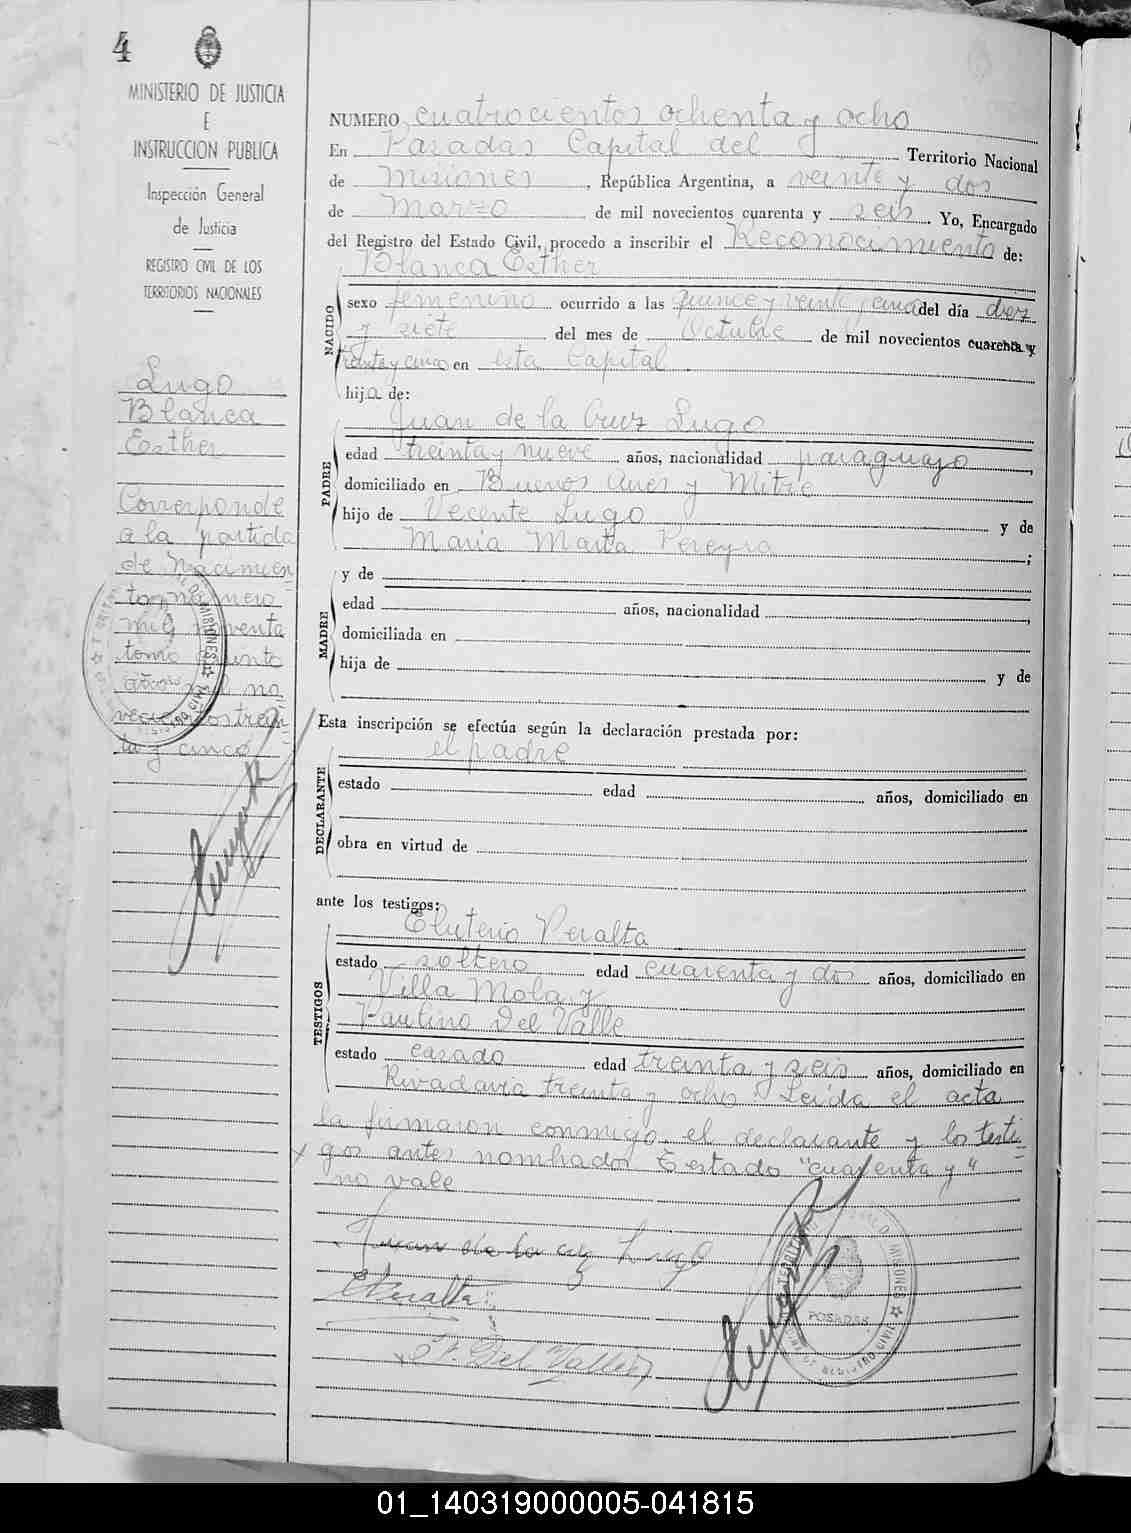 4
MINISTERIO DE JUSTICIA
E
INSTRUCCION PUBLICA
Inspección General
de Justicia
REGISTRO CIVIL DE LOS
TERRITORIOS NACIONALES
Lugo
Blanca
Esther
Corresponde
a la partida
de Nacimien
to número
mil noventa
tomo quinto
año mil no
vecientos trein
ta y cinco
NUMERO cuatrocientos ochenta y ocho
En Posadas Capital del Territorio Nacional
de Misiones, República Argentina, a veinte y dos
de Marzo de mil novecientos cuarenta y seis. Yo, Encargado
del Registro del Estado Civil, procedo a inscribir el Reconocimiento de:
Blanca Esther
NACIDO
sexo femenino ocurrido a las quince y veinte y cinco del día diez
y siete del mes de Octubre de mil novecientos cuarenta y
treinta y cinco en esta Capital
hija de:
Juan de la Cruz Lugo
PADRE
edad treinta y nueve años, nacionalidad paraguayo,
domiciliado en Buenos Aires y Mitre
hijo de Vecente Lugo y de
Maria Marta Pereyra;
MADRE
y de
edad años, nacionalidad,
domiciliada en
hija de y de
Esta inscripción se efectúa según la declaración prestada por:
el padre
DECLARANTE
estado edad años, domiciliado en
obra en virtud de
ante los testigos:
Eluterio Peralta
TESTIGOS
estado soltero edad cuarenta y dos años, domiciliado en
Villa Mola y
Paulino Del Valle
estado casado edad treinta y seis años, domiciliado en
Rivadavia treinta y ocho. Leída el acta
la firmaron conmigo el declarante y los testi
gos antes nombrados Testado "cuarenta y"
no vale
Juan de la cruz Lugo
E Peralta
P. Del Valle
POSADAS
01_140319000005-041815